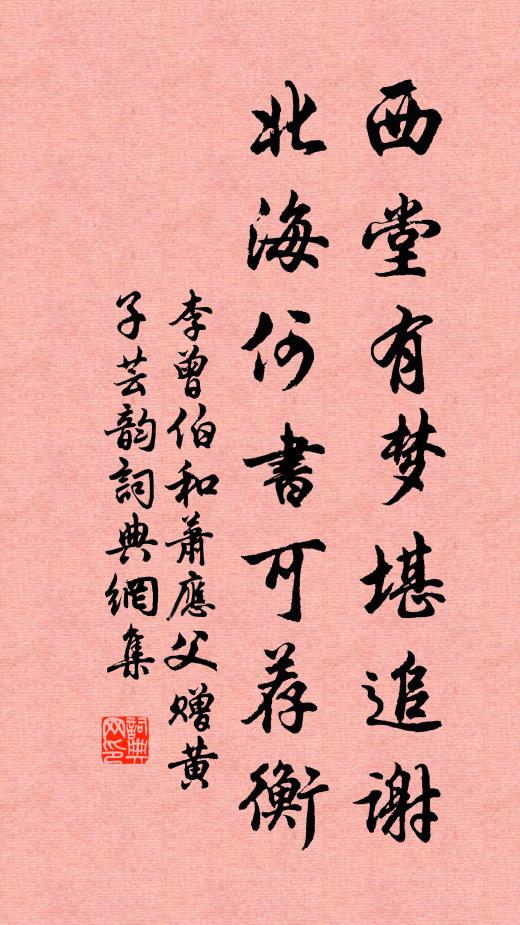 西堂有梦堪追谢
北海何书可荐衡
李曾伯和萧應父赠黄
子芸韵詞典網集
詞典
网印